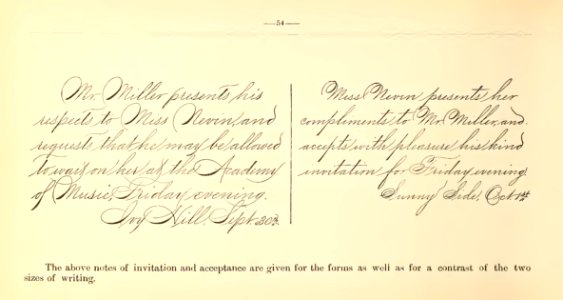 —54—
Mr. Miller presents his
respects to Miss Nevin, and
requests that he may be allowed
to wait on her at the Academy
of Music, Friday evening.
Ivy Hill. Sept. 30th.
Miss Nevin presents her
compliments to Mr. Miller, and
accepts with pleasure his kind
invitation for Friday evening.
Sunny Side, Oct. 1st.
The above notes of invitation and acceptance are given for the forms as well as for a contrast of the two
sizes of writing.